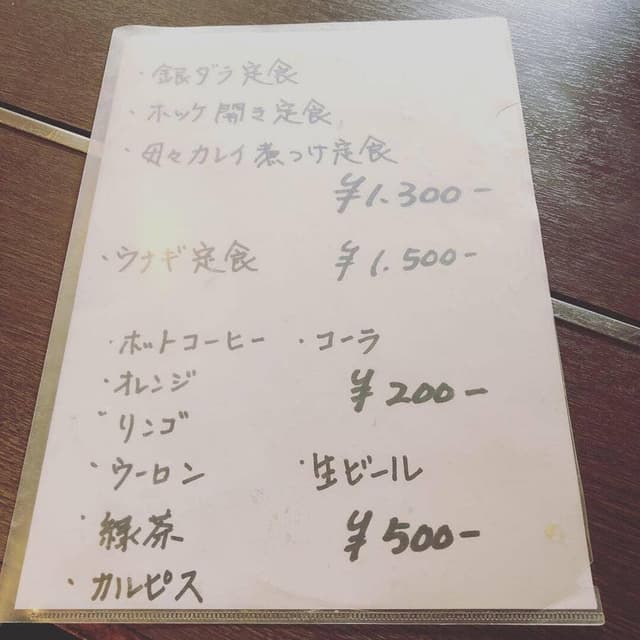 ・銀ダラ定食
・ホッケ開き定食
・母々カレイ煮つけ定食
￥1.300-
・ウナギ定食 ￥1.500-
・ホットコーヒー ・コーラ
・オレンジ ￥200-
・リンゴ
・ウーロン ・生ビール
・緑茶 ￥500-
・カルピス